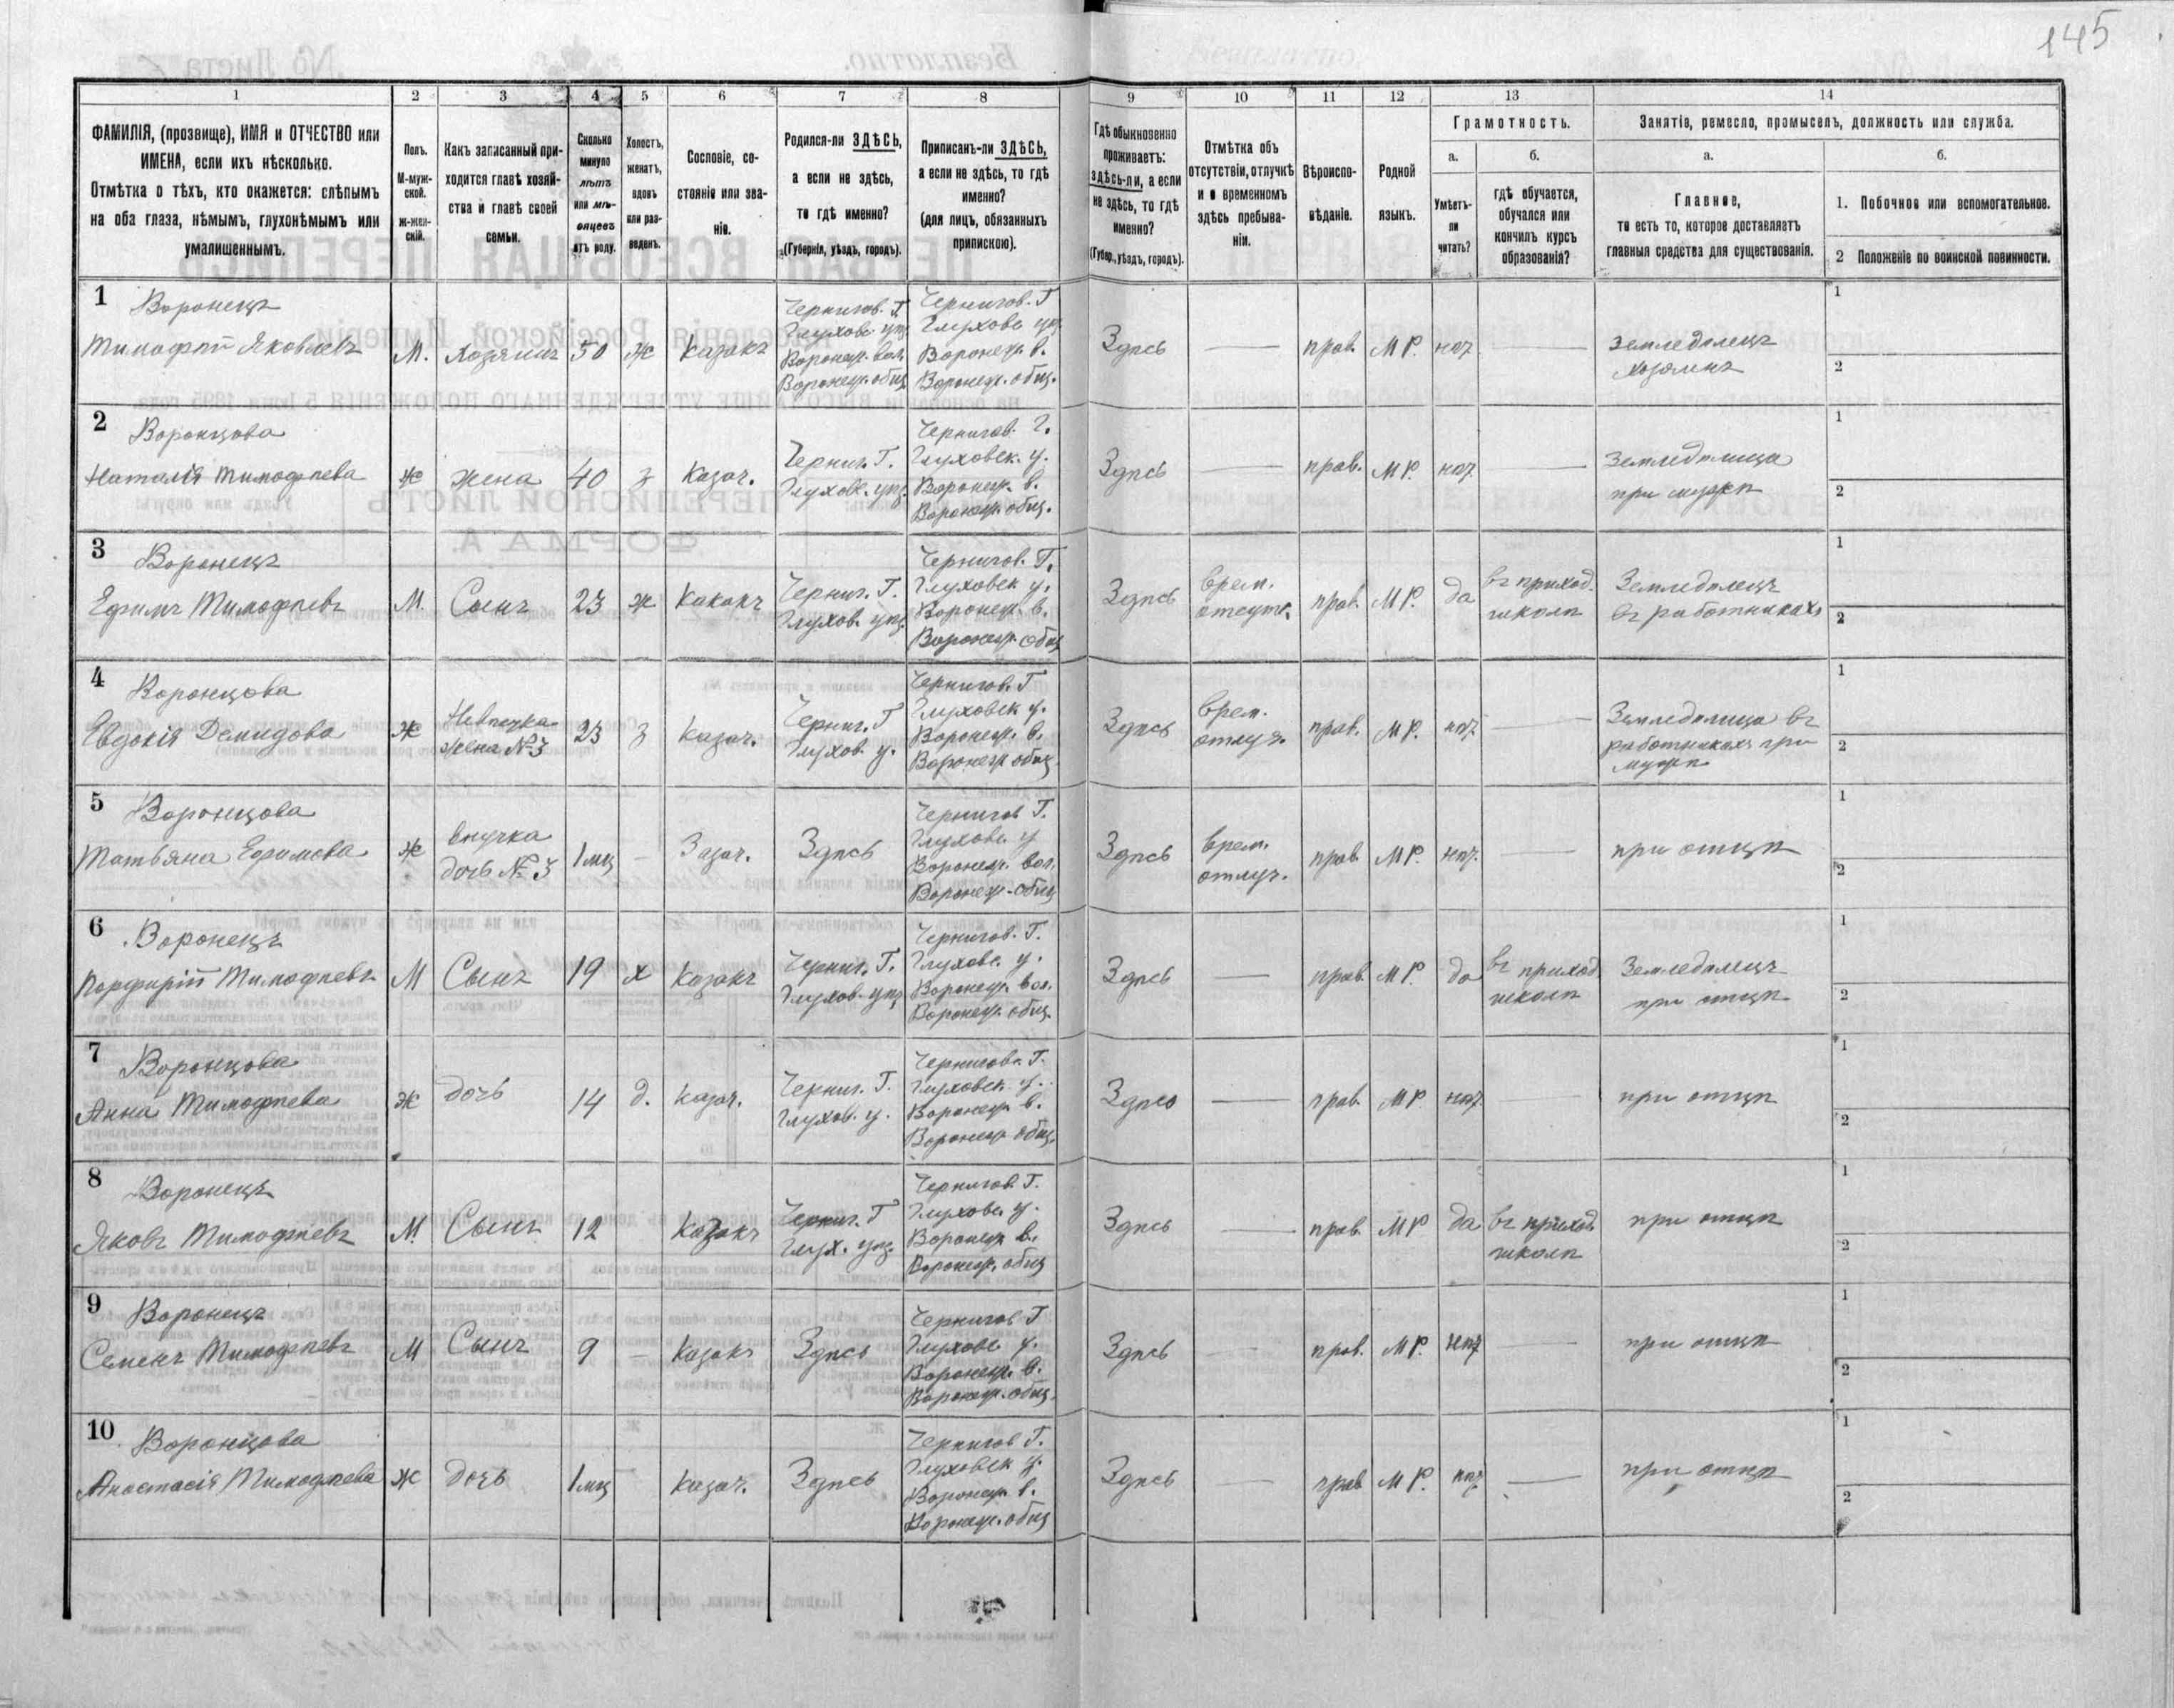 145
1
2
3
4
5
6
7
8
9
10
11
12
13
14
ФАМИЛІЯ, (прозвище), ИМЯ и ОТЧЕСТВО или
ИМЕНА, если ихъ нѣсколько.
Отмѣтка о тѣхъ, кто окажется: слѣпымъ
на оба глаза, нѣмымъ, глухонѣмымъ или
умалишеннымъ.
Полъ.
М-муж-
ской.
ж-жен-
скій.
Какъ записанный при-
ходится главѣ хозяй-
ства и главѣ своей
семьи.
Сколько
минуло
лѣтъ
или мѣ-
сяцевъ
отъ роду.
Холостъ,
женатъ,
вдовъ
или раз-
веденъ.
Сословіе, со-
стояніе или зва-
ніе.
Родился-ли ЗДѢСЬ,
а если не здѣсь,
то гдѣ именно?
(Губернія, уѣздъ, городъ).
Приписанъ-ли ЗДѢСЬ,
а если не здѣсь, то гдѣ
именно?
(для лицъ, обязанныхъ
припискою).
Гдѣ обыкновенно
проживаетъ:
здѣсь-ли, а если
не здѣсь, то гдѣ
именно?
(Губер., уѣздъ, городъ).
Отмѣтка объ
отсутствіи, отлучкѣ
и о временномъ
здѣсь пребыва-
ніи.
Вѣроиспо-
вѣданіе.
Родной
языкъ.
Грамотность.
а.
Умѣетъ-
ли
читать?
б.
гдѣ обучается,
обучался или
кончилъ курсъ
образованія?
Занятіе, ремесло, промыселъ, должность или служба.
а.
Главное,
то есть то, которое доставляетъ
главныя средства для существованія.
б.
1. Побочное или вспомогательное.
2 Положеніе по воинской повинности.
1
Воронецъ
Тимофѣй Яковлевъ
М.
Хозяинъ
50
ж
казакъ
Чернигов. Г.
Глуховс. уѣз.
Воронеж. вол.
Воронеж. общ.
Чернигов. Г
Глуховс уѣз.
Воронеж. в.
Воронеж. общ.
Здѣсь
прав.
М Р.
нѣт
земледѣлецъ
хозяинъ
1
2
2
Воронцова
Наталія Тимофѣева
ж
жена
40
з
казач.
Черниг. Г.
Глуховс. уѣз.
Чернигов. Г.
Глуховск. у.
Воронеж. в.
Воронеж. общ.
Здѣсь
прав.
М Р.
нѣт
земледѣлица
при мужѣ
1
2
3
Воронецъ
Ефимъ Тимофѣевъ
М.
Сынъ
23
ж
какакъ
Черниг. Г.
Глухов. уѣз.
Чернигов. Г.
Глуховск у.
Воронеж. в.
Воронеж. общ
Здѣсь
врем.
отсутс.
прав.
М Р.
да
въ приход.
школѣ
Земледѣлецъ
въ работникахъ
1
2
4
Воронцова
Евдокія Демидова
ж
Невѣстка
жена № 3
23
з
казач.
Черниг. Г
Глухов. у.
Чернигов. Г
Глуховск у.
Воронеж. в.
Воронеж общ.
Здѣсь
врем.
отлуч.
прав.
М Р.
нѣт
Земледѣлица въ
работникахъ при
мужѣ
1
2
5
Воронцова
Татьяна Ефимова
ж
внучка
дочь № 3
1 мц
Зазач.
Здѣсь
Чернигов Г.
Глуховс. у
Воронеж. вол.
Воронеж. общ
Здѣсь
врем.
отлуч.
прав.
М Р.
нѣт.
при отцѣ
1
2
6
Воронецъ
Порфирій Тимофѣевъ
М
Сынъ
19
х
казакъ
Черниг. Г.
Глухов. уѣз
Чернигов. Г.
Глуховс. у.
Воронеж. вол.
Воронеж. общ.
Здѣсь
прав.
М Р.
да
въ приход
школѣ
Земледѣлецъ
при отцѣ
1
2
7
Воронцова
Анна Тимофѣева
ж
дочь
14
д.
казач.
Черниг. Г.
Глухов. у.
Чернигов. Г.
Глуховск у.
Воронеж в.
Воронеж общ.
Здѣсь
прав.
М Р
нѣт
при отцѣ
1
2
8
Воронецъ
Яковъ Тимофѣевъ
М.
Сынъ
12
казакъ
Черниг. Г
Глух. уѣз.
Чернигов. Г.
Глуховс. у.
Воронеж в.
Воронеж. общ
Здѣсь
прав.
М Р
да
въ приход.
школѣ
при отцѣ
1
2
9
Воронецъ
Семенъ Тимофѣевъ
М
Сынъ
9
казакъ
Здѣсь
Чернигов Г
Глуховс у.
Воронеж. в.
Воронеж. общ.
Здѣсь
прав.
М Р.
нѣт
при отцѣ
1
2
10
Воронцова
Анастасія Тимофѣева
ж
дочь
1 мц
казач.
Здѣсь
Чернигов Г.
Глуховск у.
Воронеж в.
Воронеж. общ
Здѣсь
прав
М Р.
нѣт
при отцѣ
1
2